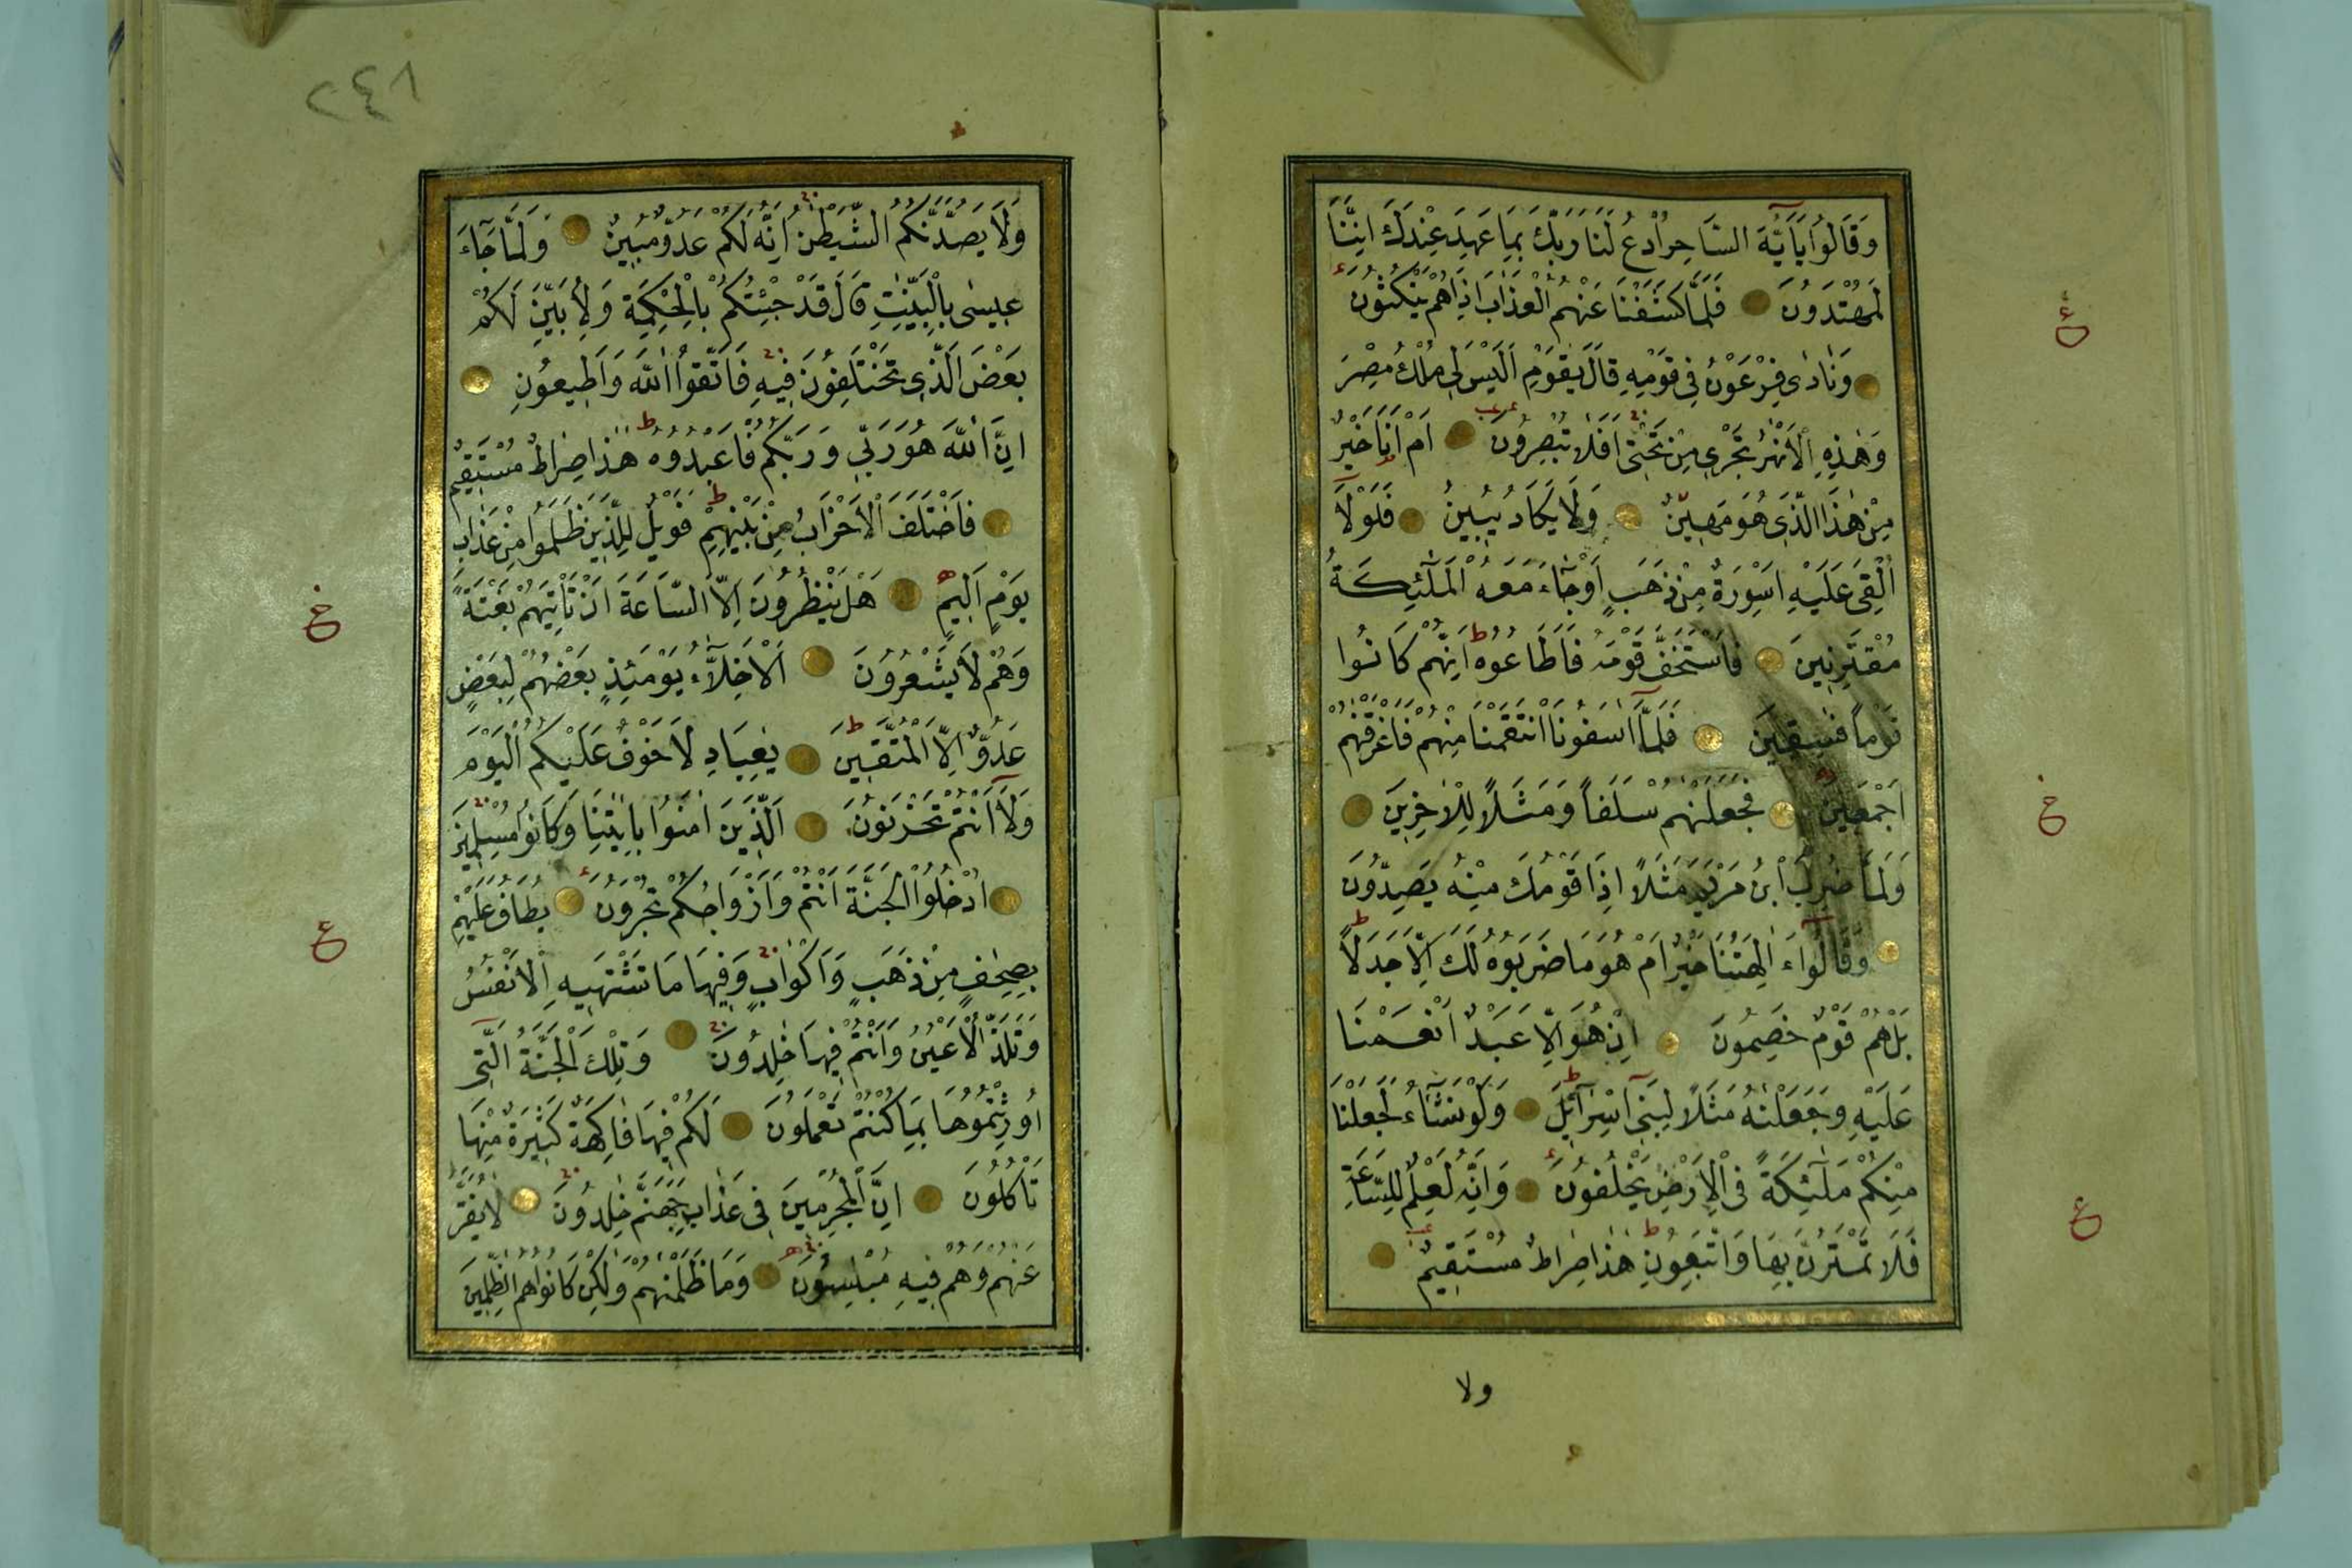 وَقَالُوا يَآ اَيُّهَ السَّاحِرُ ادْعُ لَنَا رَبَّكَ بِمَا عَهِدَ عِنْدَكَ اِنَّنَا
لَمُهْتَدُونَ فَلَمَّا كَشَفْنَا عَنْهُمُ الْعَذَابَ اِذَا هُمْ يَنْكُثُونَ
وَنَادٰى فِرْعَوْنُ فِى قَوْمِهِ قَالَ يٰقَوْمِ اَلَيْسَ لِى مُلْكُ مِصْرَ
وَهٰذِهِ الْاَنْهٰرُ تَجْرِى مِنْ تَحْتِى اَفَلَا تُبْصِرُونَ اَمْ اَنَا خَيْرٌ
مِنْ هٰذَا الَّذِى هُوَ مَهِينٌ وَلَا يَكَادُ يُبِينُ فَلَوْلَآ
اُلْقِىَ عَلَيْهِ اَسْوِرَةٌ مِنْ ذَهَبٍ اَوْ جَآءَ مَعَهُ الْمَلٰٓئِكَةُ
مُقْتَرِنِينَ فَاسْتَخَفَّ قَوْمَهُ فَاَطَاعُوهُ اِنَّهُمْ كَانُوا
قَوْمًا فٰسِقِينَ فَلَمَّآ اٰسَفُونَا انْتَقَمْنَا مِنْهُمْ فَاَغْرَقْنٰهُمْ
اَجْمَعِينَ فَجَعَلْنٰهُمْ سَلَفًا وَمَثَلًا لِلْاٰخِرِينَ
وَلَمَّا ضُرِبَ ابْنُ مَرْيَمَ مَثَلًا اِذَا قَوْمُكَ مِنْهُ يَصِدُّونَ
وَقَالُوٓا ءَاٰلِهَتُنَا خَيْرٌ اَمْ هُوَ مَا ضَرَبُوهُ لَكَ اِلَّا جَدَلًا
بَلْ هُمْ قَوْمٌ خَصِمُونَ اِنْ هُوَ اِلَّا عَبْدٌ اَنْعَمْنَا
عَلَيْهِ وَجَعَلْنٰهُ مَثَلًا لِبَنِىٓ اِسْرَآئِلَ وَلَوْ نَشَآءُ لَجَعَلْنَا
مِنْكُمْ مَلٰٓئِكَةً فِى الْاَرْضِ يَخْلُفُونَ وَاِنَّهُ لَعِلْمٌ لِلسَّاعَةِ
فَلَا تَمْتَرُنَّ بِهَا وَاتَّبِعُونِ هٰذَا صِرَاطٌ مُسْتَقِيمٌ
ولا
ع
خ
ع
٢٤٨
وَلَا يَصُدَّنَّكُمُ الشَّيْطٰنُ اِنَّهُ لَكُمْ عَدُوٌّ مُبِينٌ وَلَمَّا جَآءَ
عِيسٰى بِالْبَيِّنٰتِ قَالَ قَدْ جِئْتُكُمْ بِالْحِكْمَةِ وَلِاُبَيِّنَ لَكُمْ
بَعْضَ الَّذِى تَخْتَلِفُونَ فِيهِ فَاتَّقُوا اللّٰهَ وَاَطِيعُونِ
اِنَّ اللّٰهَ هُوَ رَبِّى وَرَبُّكُمْ فَاعْبُدُوهُ هٰذَا صِرَاطٌ مُسْتَقِيمٌ
فَاخْتَلَفَ الْاَحْزَابُ مِنْ بَيْنِهِمْ فَوَيْلٌ لِلَّذِينَ ظَلَمُوا مِنْ عَذَابِ
يَوْمٍ اَلِيمٍ هَلْ يَنْظُرُونَ اِلَّا السَّاعَةَ اَنْ تَاْتِيَهُمْ بَغْتَةً
وَهُمْ لَا يَشْعُرُونَ اَلْاَخِلَّآءُ يَوْمَئِذٍ بَعْضُهُمْ لِبَعْضٍ
عَدُوٌّ اِلَّا الْمُتَّقِينَ يٰعِبَادِ لَا خَوْفٌ عَلَيْكُمُ الْيَوْمَ
وَلَآ اَنْتُمْ تَحْزَنُونَ اَلَّذِينَ اٰمَنُوا بِاٰيٰتِنَا وَكَانُوا مُسْلِمِينَ
اُدْخُلُوا الْجَنَّةَ اَنْتُمْ وَاَزْوَاجُكُمْ تُحْبَرُونَ يُطَافُ عَلَيْهِمْ
بِصِحَافٍ مِنْ ذَهَبٍ وَاَكْوَابٍ وَفِيهَا مَا تَشْتَهِيهِ الْاَنْفُسُ
وَتَلَذُّ الْاَعْيُنُ وَاَنْتُمْ فِيهَا خٰلِدُونَ وَتِلْكَ الْجَنَّةُ الَّتِى
اُورِثْتُمُوهَا بِمَا كُنْتُمْ تَعْمَلُونَ لَكُمْ فِيهَا فَاكِهَةٌ كَثِيرَةٌ مِنْهَا
تَاْكُلُونَ اِنَّ الْمُجْرِمِينَ فِى عَذَابِ جَهَنَّمَ خٰلِدُونَ لَا يُفَتَّرُ
عَنْهُمْ وَهُمْ فِيهِ مُبْلِسُونَ وَمَا ظَلَمْنٰهُمْ وَلٰكِنْ كَانُوا هُمُ الظّٰلِمِينَ
خ
ع